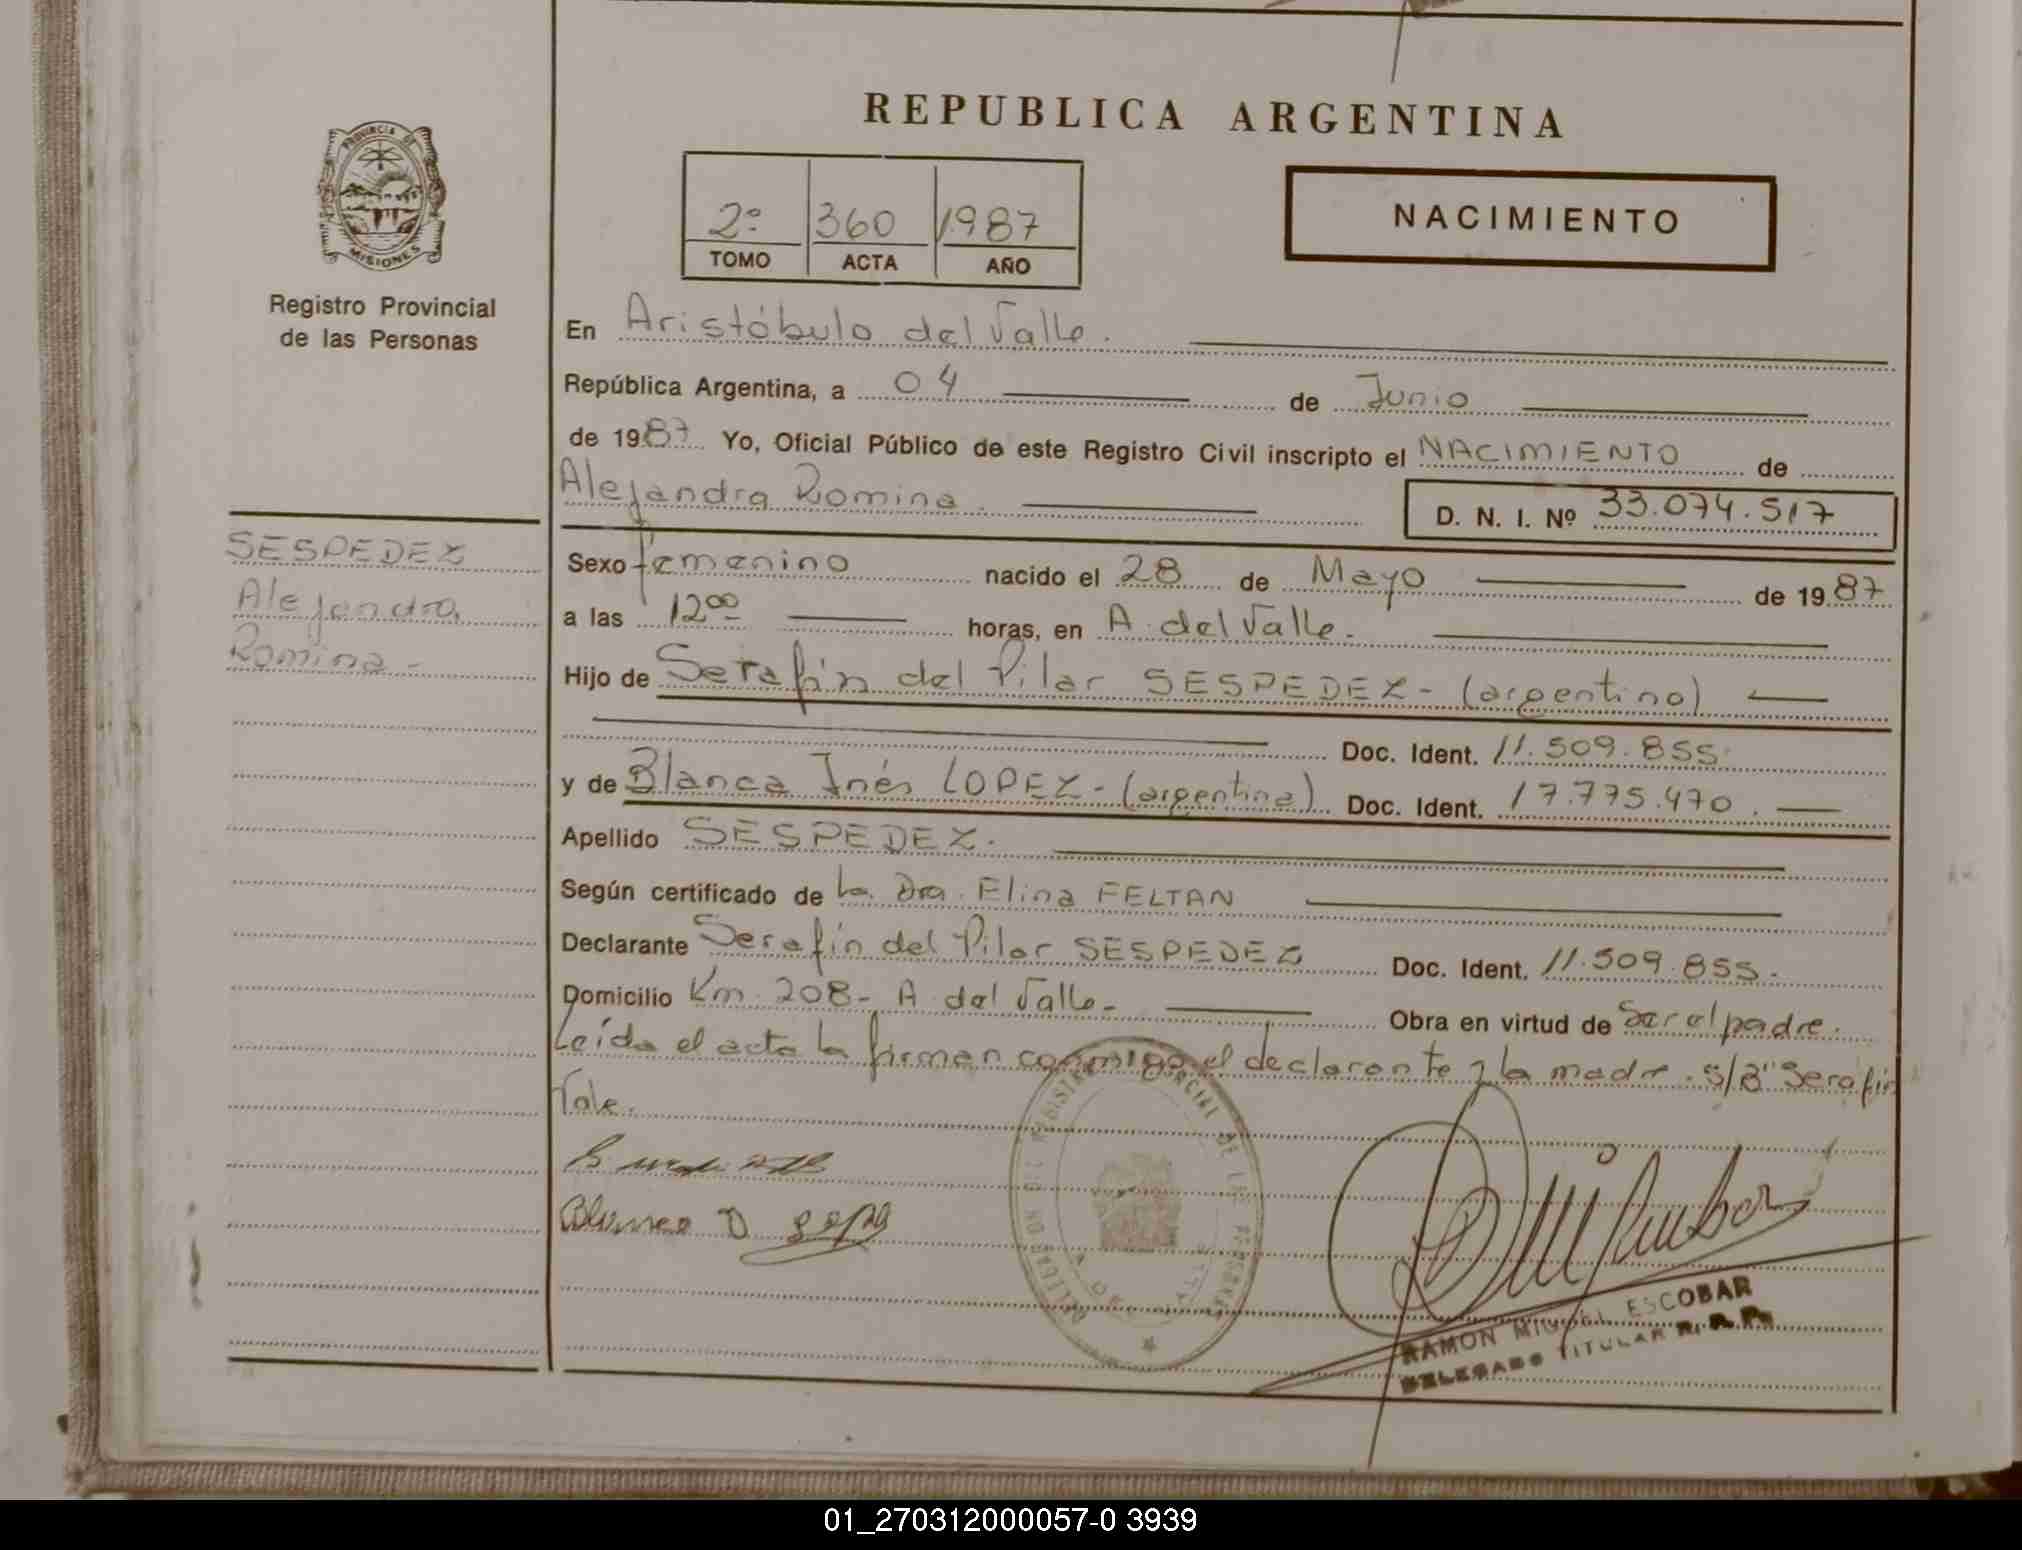 REPUBLICA ARGENTINA
PROVINCIA DE MISIONES
Registro Provincial
de las Personas
2º 360 1987
TOMO ACTA AÑO
NACIMIENTO
En Aristóbulo del Valle.
República Argentina, a 04 de Junio
de 1987 Yo, Oficial Público de este Registro Civil inscripto el NACIMIENTO de
Alejandra Romina.
D. N. I. Nº 33.074.517
SESPEDEZ
Alejandra
Romina.-
Sexo femenino nacido el 28 de Mayo de 1987
a las 12ºº horas, en A. del Valle.
Hijo de Serafín del Pilar SESPEDEZ - (argentino)
Doc. Ident. 11.509.855.
y de Blanca Inés LOPEZ - (argentina) Doc. Ident. 17.775.470.
Apellido SESPEDEZ.
Según certificado de la Dra. Elina FELTAN
Declarante Serafín del Pilar SESPEDEZ Doc. Ident. 11.509.855.
Domicilio Km. 208- A. del Valle.- Obra en virtud de Ser el padre.
Leída el acta la firman conmigo el declarante y la madre. S/B "Serafín
Vale.
RAMON MIGUEL ESCOBAR
DELEGADO TITULAR R. P. P.
01_270312000057-0 3939